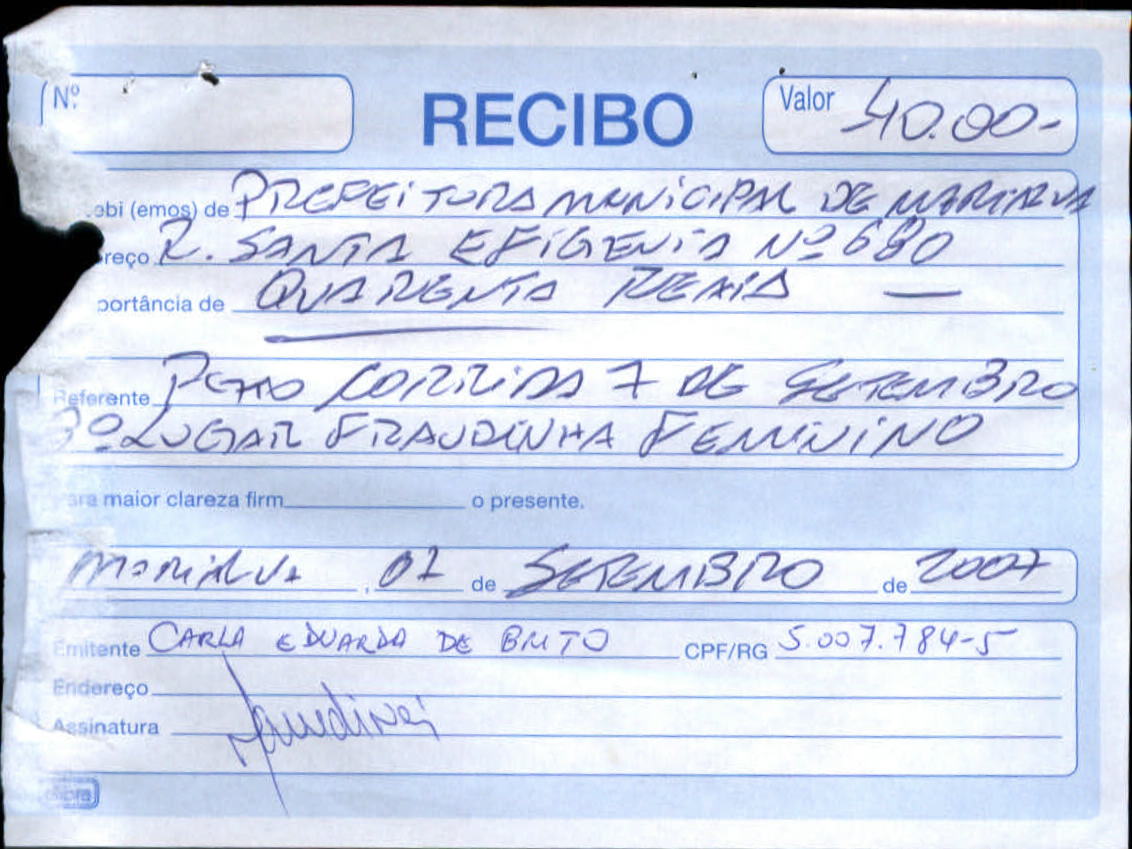 Nº
RECIBO
Valor 40.00-
ebi (emos) de PREFEITURA MUNICIPAL DE MARIALVA
reço R. SANTA EFIGENIA Nº 680
portância de QUARENTA REAIS —
Referente PGTO CORRIDA 7 DE SETEMBRO
º LUGAR FRAUDINHA FEMININO
ara maior clareza firm o presente.
MARIALVA , 07 de SETEMBRO de 2007
Emitente CARLA EDUARDA DE BRITO CPF/RG 5.007.784-5
Endereço
Assinatura